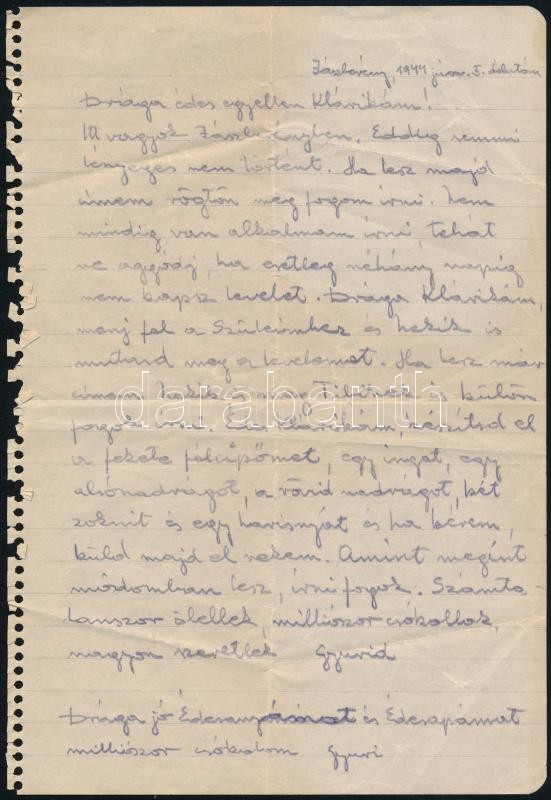 Jászberény, 1944 jún. 5. délután
Drága édes egyetlen Klárikám!
Itt vagyok Jászberényben. Eddig semmi
lényeges nem történt. Ha lesz majd
címem rögtön meg fogom írni. Nem
mindig van alkalmam írni, tehát
ne aggódj, ha esetleg néhány napig
nem kapsz levelet. Drága Klárikám,
menj fel a Szüleimhez és nekik is
mutasd meg a levelemet. Ha lesz már
címem nekik és külön
fogok írni. Klárikám, készítsd el
a fekete félcipőmet, egy inget, egy
alsónadrágot, a rövid nadrágot, két
zoknit és egy harisnyát és ha kérem,
küld majd el nekem. Amint megint
módomban lesz, írni fogok. Számta-
lanszor ölellek, milliószor csókollak,
nagyon szeretlek Gyurid
Drága jó Édesanyámat és Édesapámat
milliószor csókolom Gyuri
darabanth